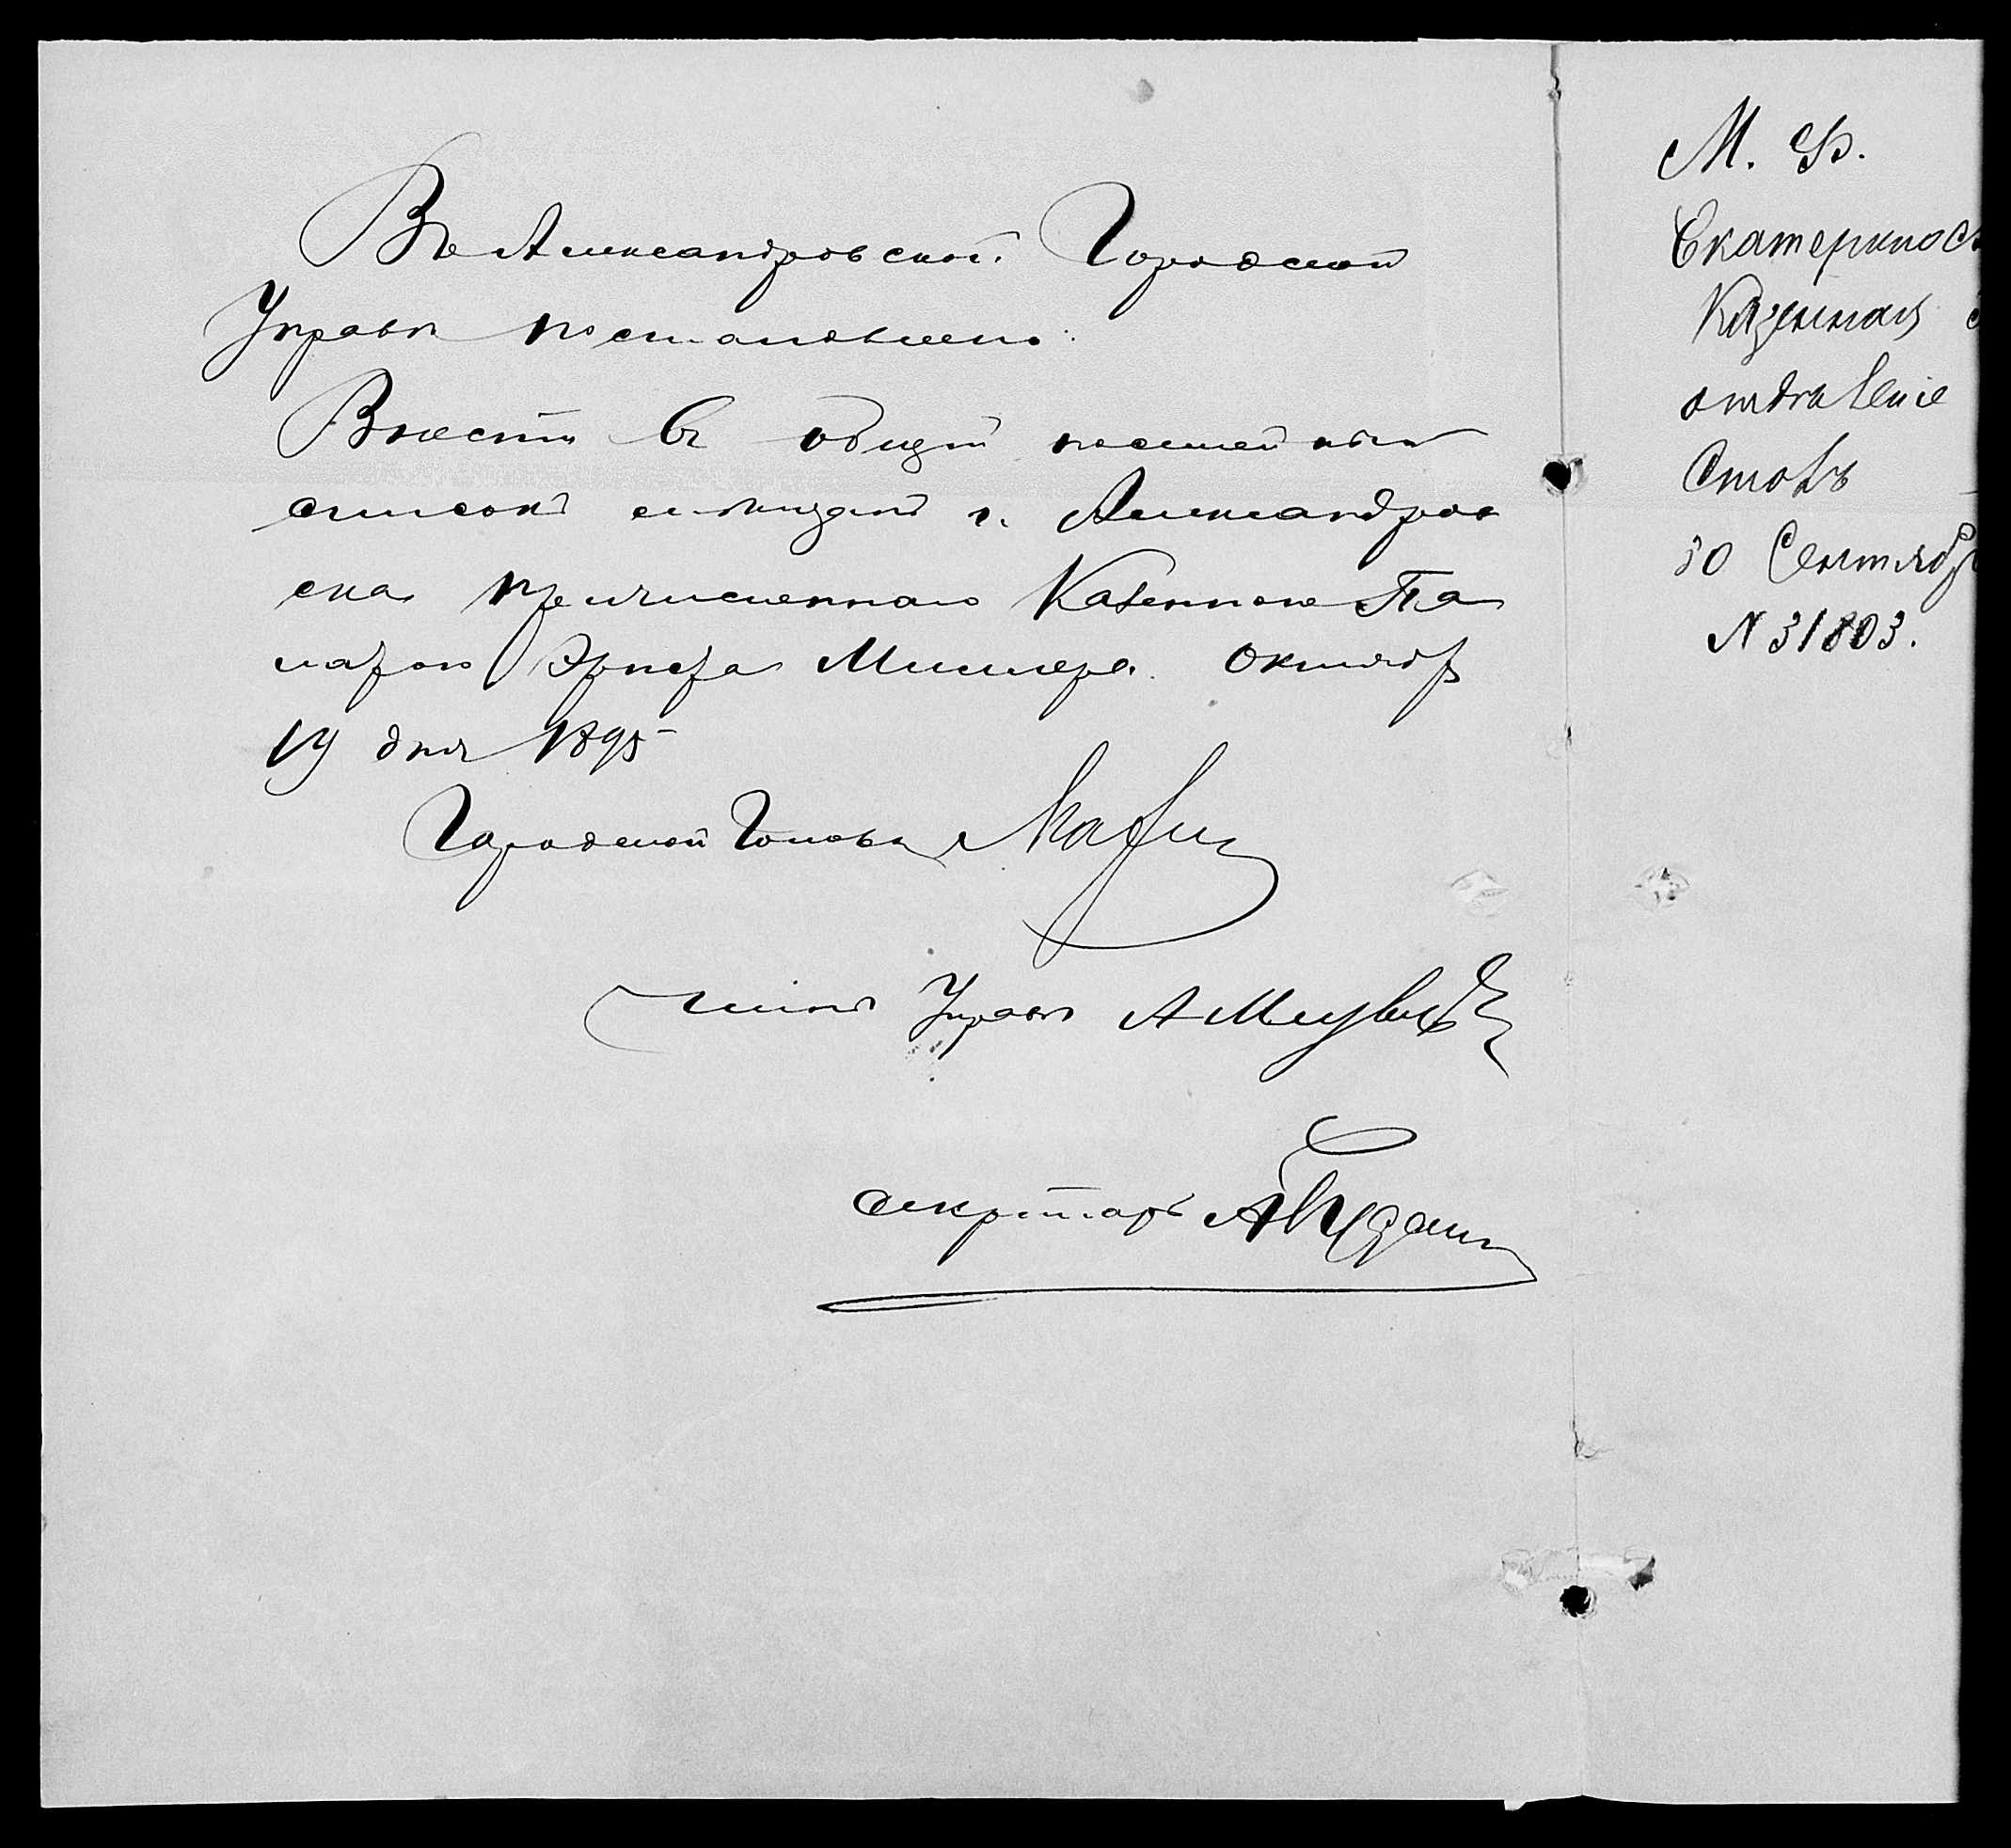 Въ Александровской Городской
Управѣ постановлено:
Внести въ общій посемейный
списокъ мѣщанъ г. Александров
ска причисленнаго Казенною Па
латою Эрнста Миллера. Октябр
19 дня 1895
Городской Голова
Членъ Управы А
Секретарь А
М. Ф.
Екатеринос
Казенная
отдѣленіе
Столъ
30 Сентябр
N 31803.